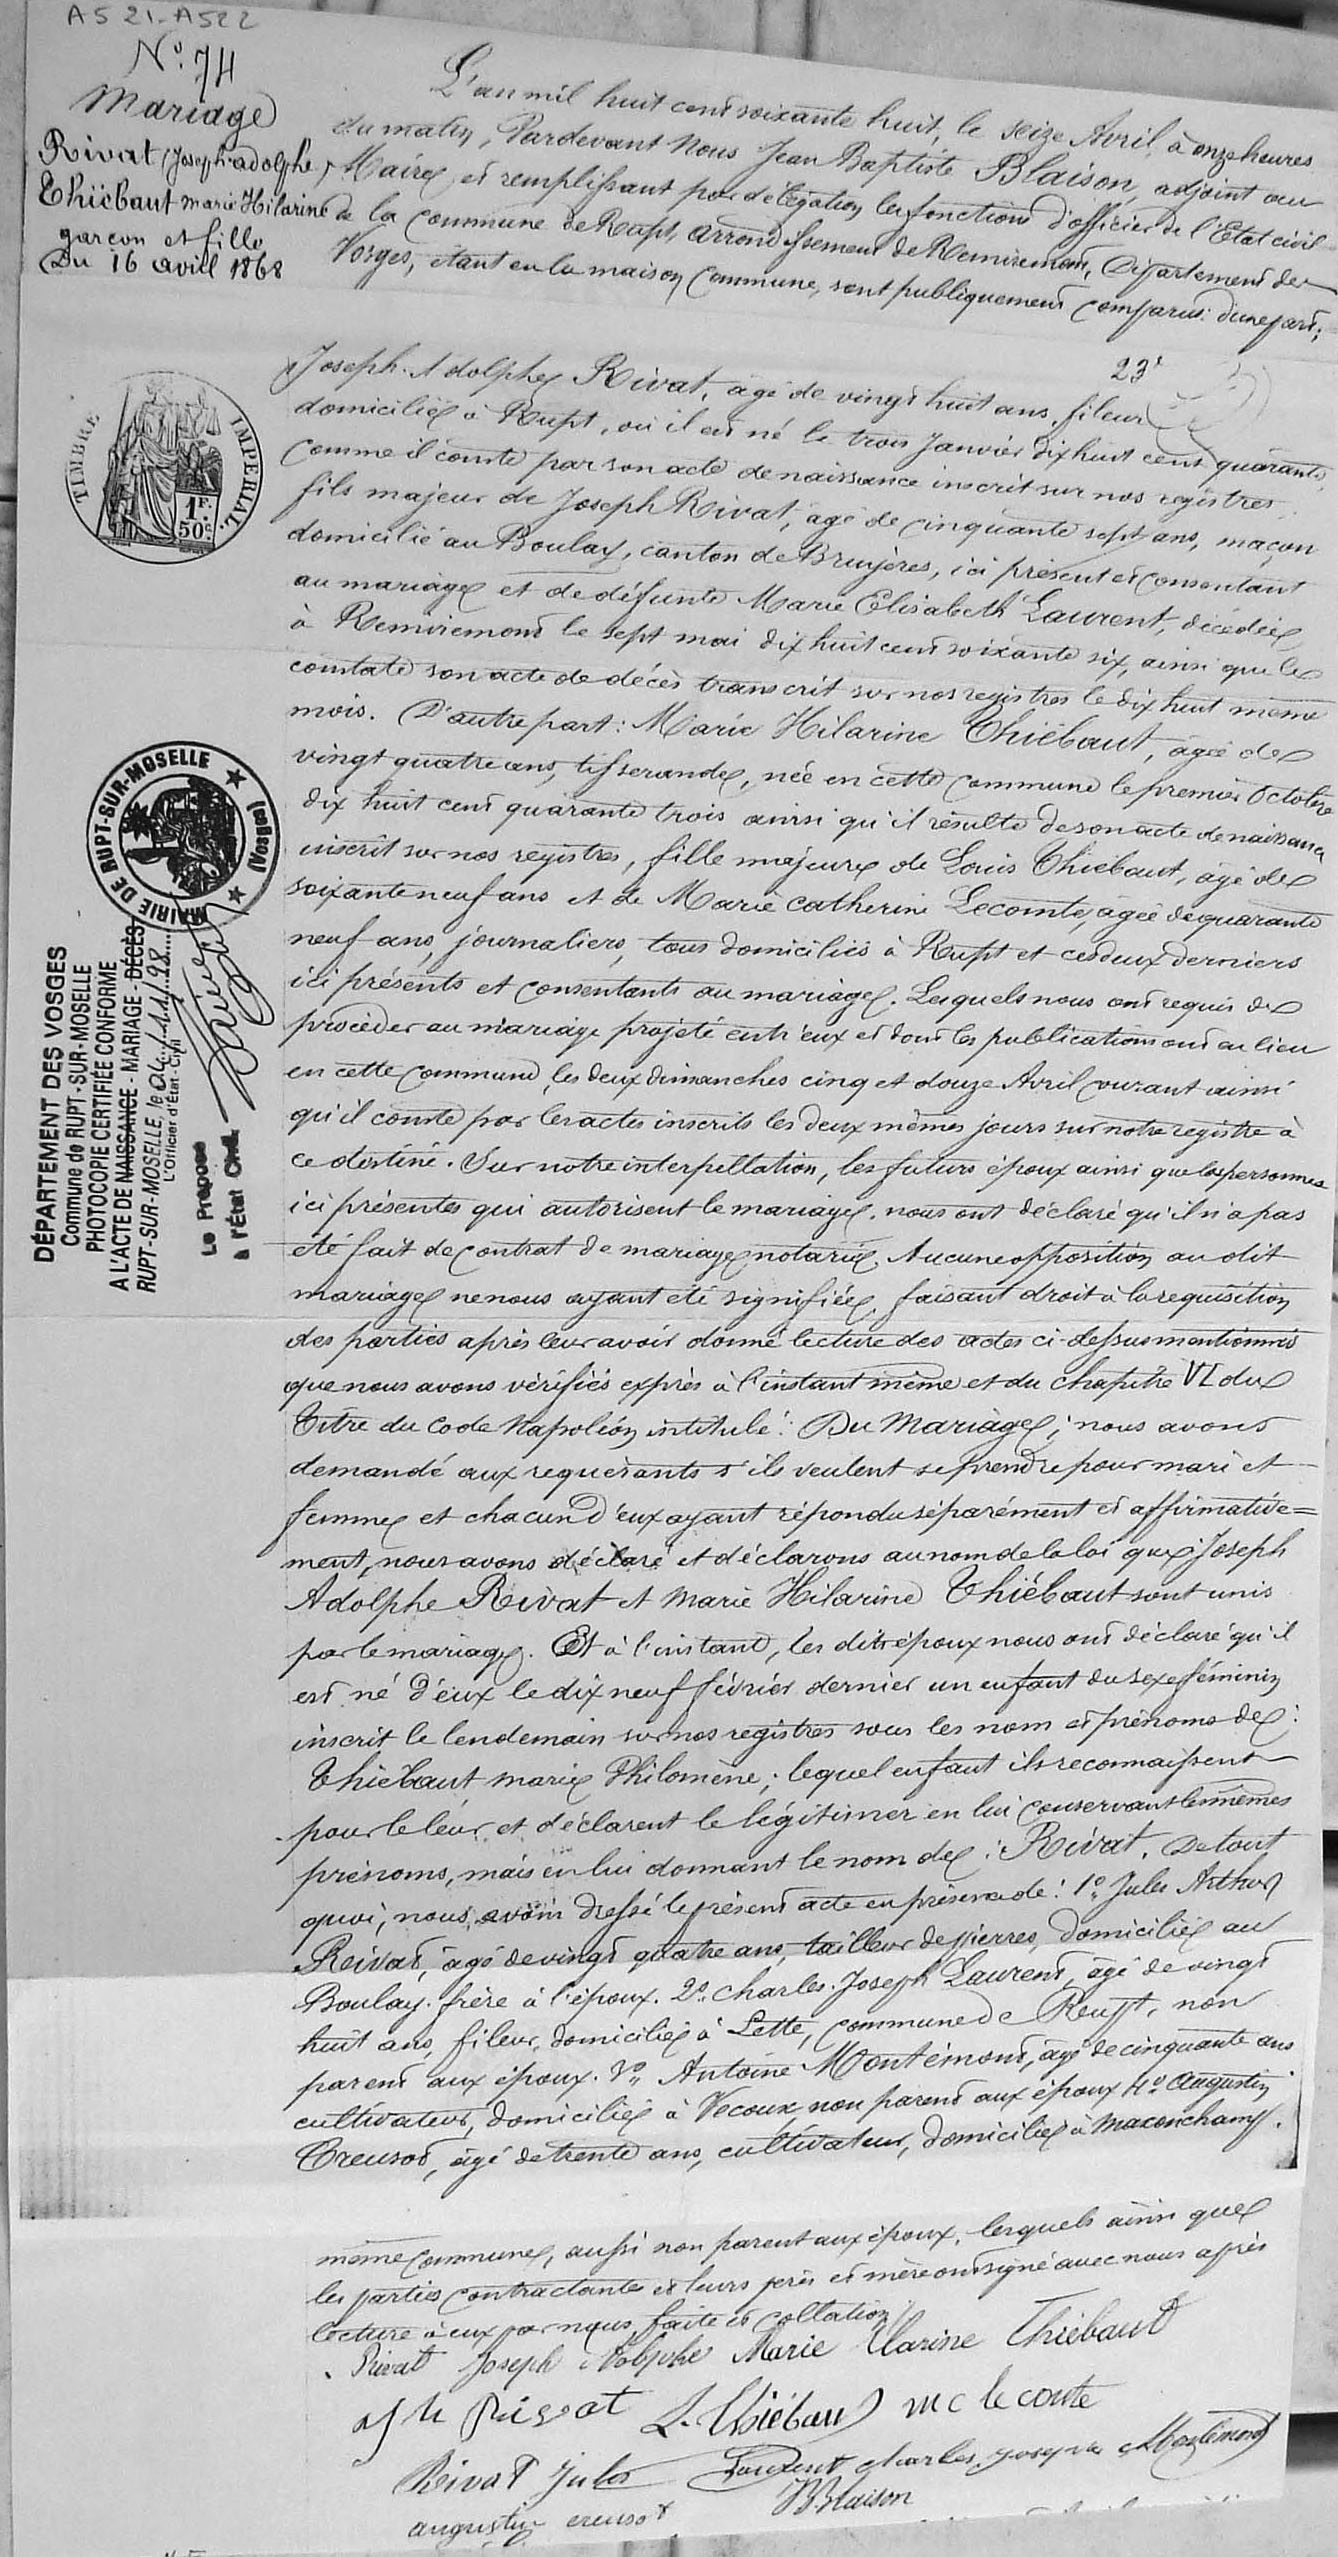 A521-A522
N° 74
Mariage
Rivat Joseph-adolphe,
Thiébaut marie Hilarine
garçon et fille
Du 16 avril 1868
L'an mil huit cent soixante huit, le seize Avril, à onze heures
du matin, Pardevant Nous Jean Baptiste Blaison, adjoint au
Maire, et remplissant par délégation les fonctions d'officier de l'Etat civil
de la Commune de Rupt, arrondissement de Remiremont, Département des
Vosges, étant en la maison Commune, sont publiquement comparus: d'une part,
23
Joseph-Adolphe Rivat, âgé de vingt huit ans, fileur
domicilié à Rupt, où il est né le trois Janvier dix huit cent quarante,
Comme il conste par son acte de naissance inscrit sur nos registres,
fils majeur de Joseph Rivat, âgé de cinquante sept ans, maçon
domicilié au Boulay, canton de Bruyères, ici présent et consentant
au mariage et de défunte Marie Elisabeth Laurent, décédée
à Remiremont le sept mai dix huit cent soixante six, ainsi que le
constate son acte de décès transcrit sur nos registres le dix huit même
mois. D'autre part: Marie Hilarine Thiébaut, âgée de
vingt quatre ans, tisserande, née en cette commune le premier Octobre
dix huit cent quarante trois ainsi qu'il résulte de son acte de naissance
inscrit sur nos registres, fille majeure de Louis Thiébaut, âgé de
soixante neuf ans et de Marie Catherine Lecomte, âgée de quarante
neuf ans, journaliers, tous domiciliés à Rupt et ces deux derniers
ici présents et consentants au mariage. Lesquels nous ont requis de
procéder au mariage projeté entr'eux et dont les publications ont eu lieu
en cette commune, les deux dimanches cinq et douze Avril courant ainsi
qu'il conste par les actes inscrits les deux mêmes jours sur notre registre à
ce destiné. Sur notre interpellation, les futurs époux ainsi que les personnes
ici présentes qui autorisent le mariage, nous ont déclaré qu'il n'a pas
été fait de contrat de mariage notarié. Aucune opposition au dit
mariage ne nous ayant été signifiée, faisant droit à la requisition
des parties après leur avoir donné lecture des actes ci-dessus mentionnés
que nous avons vérifiés exprès à l'instant même et du chapitre VI du
Titre du Code Napoléon intitulé: Du Mariage; nous avons
demandé aux requérants s'ils veulent se prendre pour mari et
femme et chacun d'eux ayant répondu séparément et affirmative=
ment, nous avons déclaré et déclarons au nom de la loi que Joseph
Adolphe Rivat et Marie Hilarine Thiébaut sont unis
par le mariage. Et à l'instant, les dits époux nous ont déclaré qu'il
est né d'eux le dix neuf février dernier un enfant du sexe féminin
inscrit le lendemain sur nos registres sous les nom et prénoms de:
Thiébaut marie Philomène; lequel enfant ils reconnaissent
pour le leur et déclarent le légitimer en lui conservant les mêmes
prénoms, mais en lui donnant le nom de: Rivat. De tout
quoi, nous avons dressé le présent acte en présence de: 1° Jules Arthur
Rivat, âgé de vingt quatre ans, tailleur de pierres, domicilié au
Boulay, frère à l'époux. 2° Charles-Joseph Laurent, âgé de vingt
huit ans, fileur, domicilié à Lette, commune de Rupt, non
parent aux époux. 3° Antoine Montémont, âgé de cinquante ans
cultivateur, domicilié à Vecoux, non parent aux époux 4° Augustin
Creusot, âgé de trente ans, cultivateur, domicilié à Maxonchamp,
même commune, aussi non parent aux époux, lesquels ainsi que
les parties contractantes et leurs pères et mère ont signé avec nous après
lecture à eux par nous faite et collation
Rivat Joseph Adolphe Marie Ilarine Thiébaut
Rivat L. Thiébaut mc le conte
Rivat Jules Laurent charles joseph Montémont
augustin creusot JB Blaison
TIMBRE IMPERIAL.
1F.
50c.
MAIRIE DE RUPT-SUR-MOSELLE
(Vosges)
DÉPARTEMENT DES VOSGES
Commune de RUPT-SUR-MOSELLE
PHOTOCOPIE CERTIFIÉE CONFORME
A L'ACTE DE NAISSANCE - MARIAGE - DÉCÈS
RUPT-SUR-MOSELLE, le 24/11/98
L'Officier d'État-Civil
Le Préposé
à l'État Civil